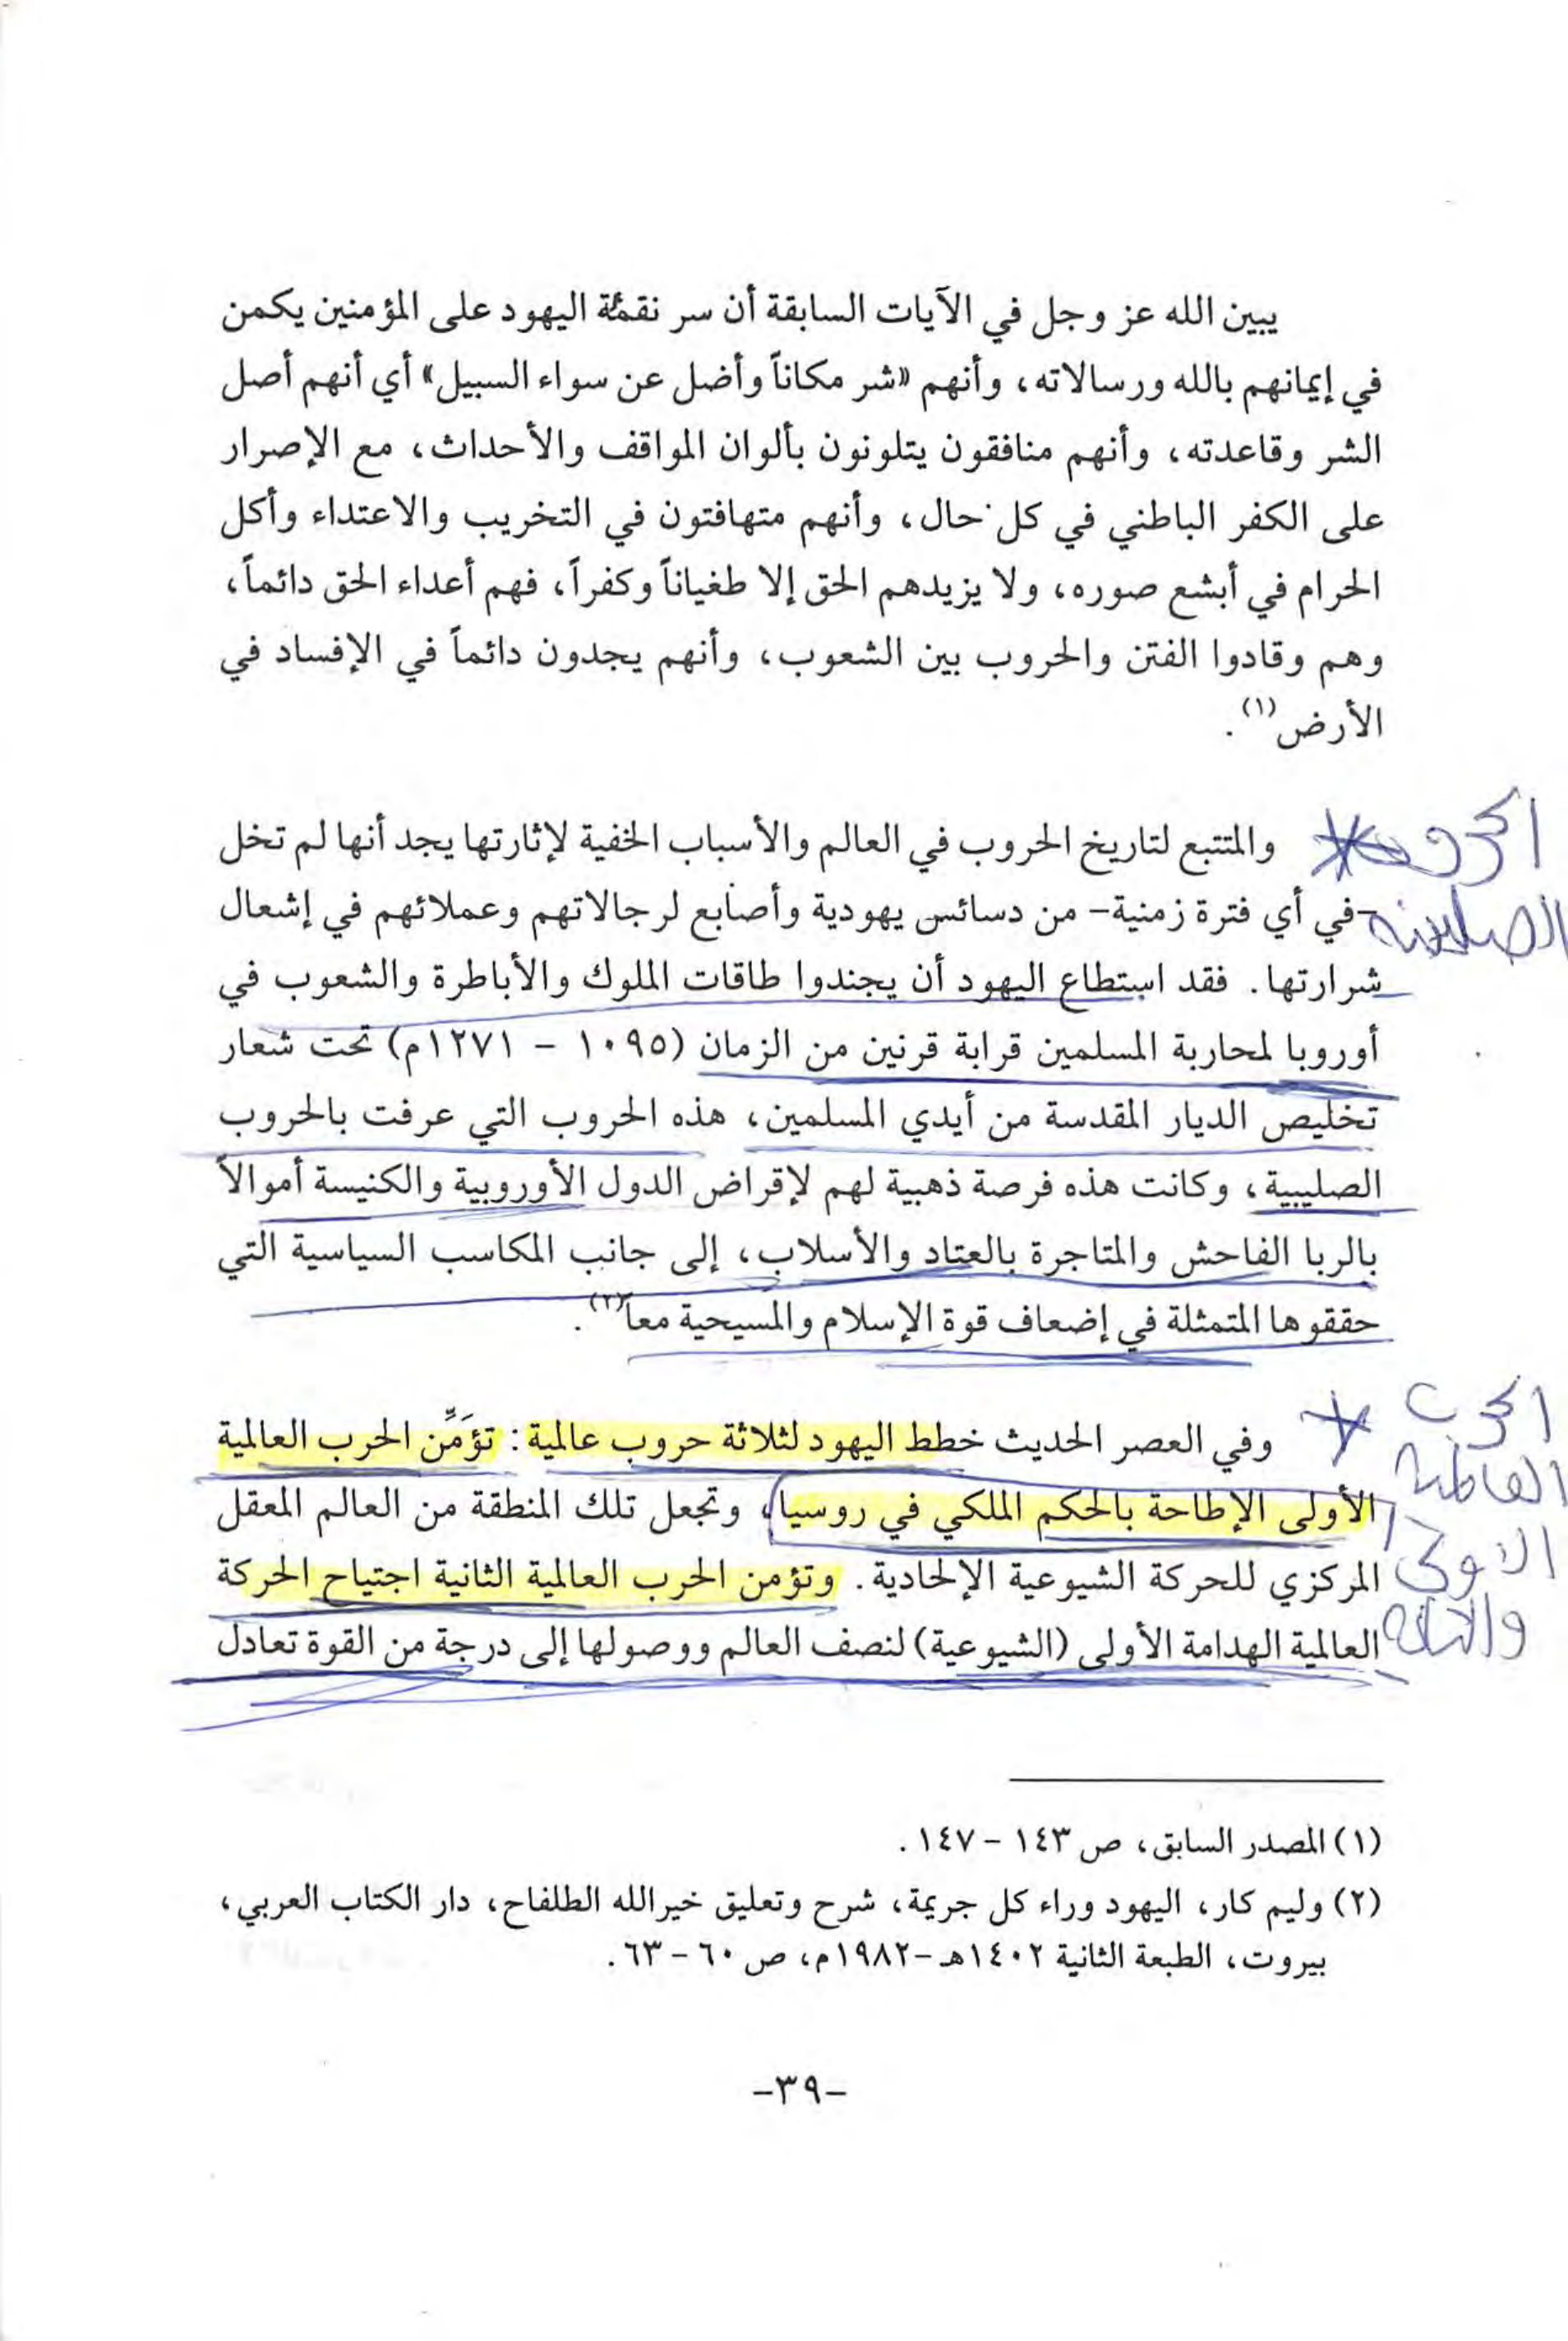 يبين الله عز وجل في الآيات السابقة أن سر نقمة اليهود على المؤمنين يكمن
في إيمانهم بالله ورسالاته، وأنهم «شر مكاناً وأضل عن سواء السبيل» أي أنهم أصل
الشر وقاعدته، وأنهم منافقون يتلونون بألوان المواقف والأحداث، مع الإصرار
على الكفر الباطني في كل حال، وأنهم متهافتون في التخريب والاعتداء وأكل
الحرام في أبشع صوره، ولا يزيدهم الحق إلا طغياناً وكفراً، فهم أعداء الحق دائماً،
وهم وقادوا الفتن والحروب بين الشعوب، وأنهم يجدون دائماً في الإفساد في
الأرض(١).
الحروب
الصليبية
والمتتبع لتاريخ الحروب في العالم والأسباب الخفية لإثارتها يجد أنها لم تخل
-في أي فترة زمنية- من دسائس يهودية وأصابع لرجالاتهم وعملائهم في إشعال
شرارتها. فقد استطاع اليهود أن يجندوا طاقات الملوك والأباطرة والشعوب في
أوروبا لمحاربة المسلمين قرابة قرنين من الزمان (١٠٩٥ - ١٢٧١م) تحت شعار
تخليص الديار المقدسة من أيدي المسلمين، هذه الحروب التي عرفت بالحروب
الصليبية، وكانت هذه فرصة ذهبية لهم لإقراض الدول الأوروبية والكنيسة أموالاً
بالربا الفاحش والمتاجرة بالعتاد والأسلاب، إلى جانب المكاسب السياسية التي
حققوها المتمثلة في إضعاف قوة الإسلام والمسيحية معاً(٢).
الحرب
العالمية
الاولى
والثانية
وفي العصر الحديث خطط اليهود لثلاثة حروب عالمية: تؤَمِّن الحرب العالمية
الأولى الإطاحة بالحكم الملكي في روسيا، وتجعل تلك المنطقة من العالم المعقل
المركزي للحركة الشيوعية الإلحادية. وتؤمن الحرب العالمية الثانية اجتياح الحركة
العالمية الهدامة الأولى (الشيوعية) لنصف العالم ووصولها إلى درجة من القوة تعادل
(١) المصدر السابق، ص ١٤٣ - ١٤٧.
(٢) وليم كار، اليهود وراء كل جريمة، شرح وتعليق خيرالله الطلفاح، دار الكتاب العربي،
بيروت، الطبعة الثانية ١٤٠٢هـ-١٩٨٢م، ص ٦٠ - ٦٣.
-٣٩-